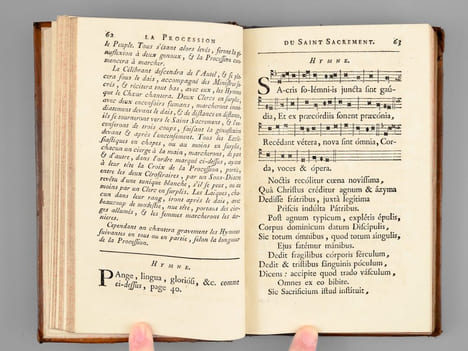 62 LA PROCESSION
le Peuple. Tous s'étant alors levés, feront la gé-
nuflexion à deux genoux, & la Procession com-
mencera à marcher.
Le Célébrant descendra de l'Autel, & se pla-
cera sous le dais, accompagné des Ministres sa-
crés, & récitera tout bas, avec eux, les Hymnes
que le Chœur chantera. Deux Clercs en surplis,
avec deux encensoirs fumans, marcheront immé-
diatement devant le dais, & de distance en distance,
ils se tourneront vers le Saint Sacrement, & l'en-
censeront de trois coups, faisant la génuflexion
devant & après l'encensement. Tous les Ecclé-
siastiques en chapes, ou au moins en surplis,
chacun un cierge à la main, marcheront, de part
& d'autre, dans l'ordre marqué ci-dessus, ayant
à leur tête la Croix de la Procession, portée
entre les deux Céroféraires, par un Sous-Diacre
revêtu d'une tunique blanche, s'il se peut, ou au
moins par un Clerc en surplis. Les Laïques, cha-
cun dans leur rang, iront après le dais, avec
beaucoup de modestie, nue tête, portant des cier-
ges allumés, & les femmes marcheront les der-
nieres.
Cependant on chantera gravement les Hymnes
suivantes en tout ou en partie, selon la longueur
de la Procession.
HYMNE.
PAnge, lingua, gloriósi, &c. comme
ci-dessus, page 40.
DU SAINT SACREMENT. 63
HYMNE.
SA-cris so-lémni-is juncta sint gáu-
dia, Et ex præcórdiis sonent præcónia,
Recédant vétera, nova sint ómnia, Cor-
da, voces & ópera.
Noctis recólitur cœna novíssima,
Quâ Christus créditur agnum & ázyma
Dedísse frátribus, juxtà legítima
Priscis indúlta Pátribus.
Post agnum typicum, explétis épulis,
Corpus domínicum datum Discípulis,
Sic totum ómnibus, quod totum síngulis,
Ejus fatémur mánibus.
Dedit fragílibus córporis férculum,
Dedit & trístibus sánguinis póculum,
Dicens: accípite quod trado vásculum,
Omnes ex eo bíbite.
Sic Sacrifícium istud instítuit,